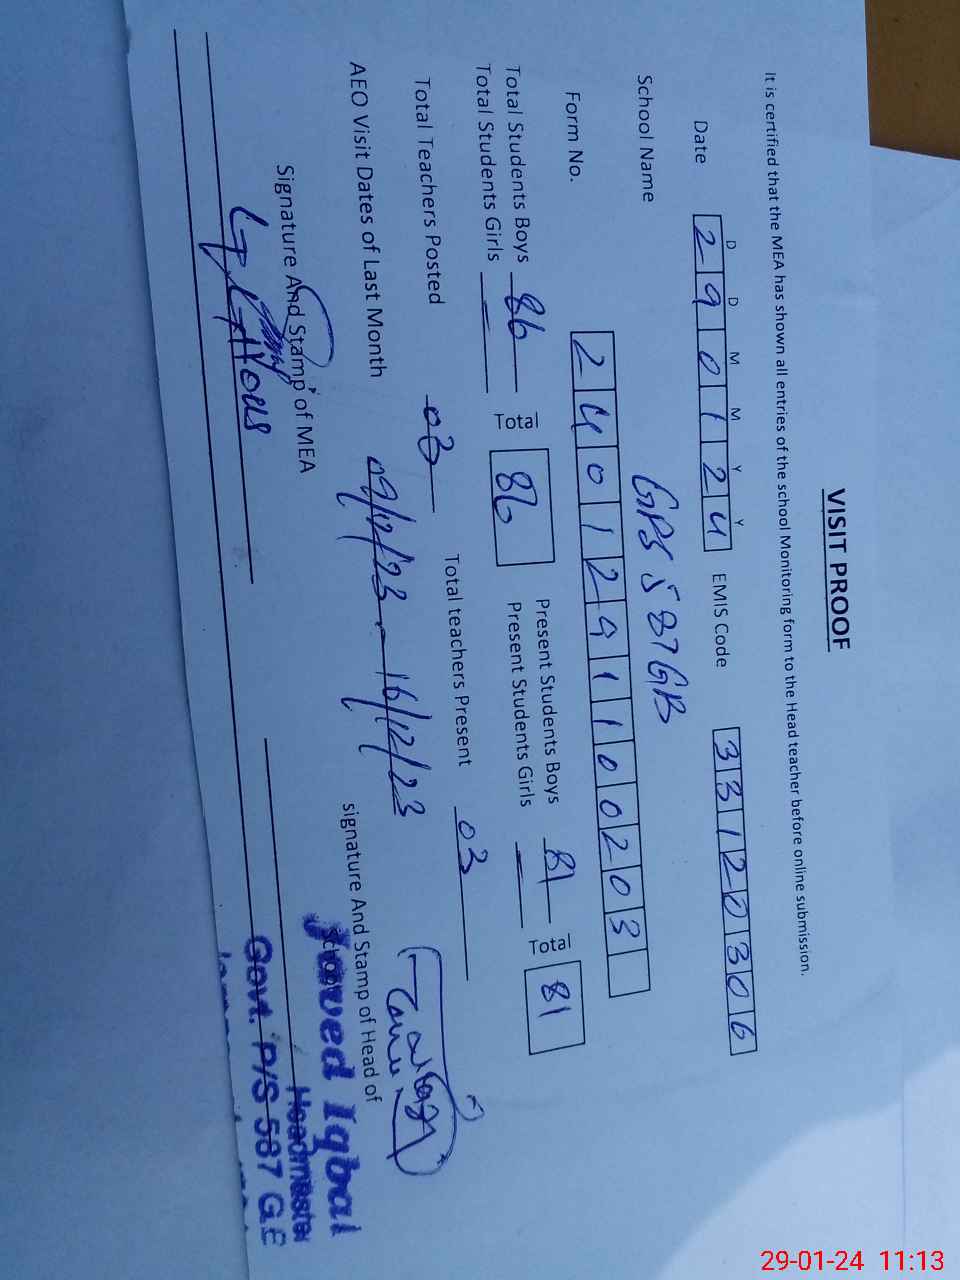 VISIT PROOF
It is certified that the MEA has shown all entries of the school Monitoring form to the Head teacher before online submission.
D D M M Y Y
Date 290124 EMIS Code 33120306
School Name GPS 587GB
Form No. 2401291100203
Total Students Boys 86 Total 86 Present Students Boys 81 Total 81
Total Students Girls — Present Students Girls —
Total Teachers Posted 03 Total teachers Present 03
AEO Visit Dates of Last Month 09/12/23 - 16/12/23
Signature And Stamp of MEA signature And Stamp of Head of
Javed Iqbal
Headmaster
Govt. P/S 587 G.B
29-01-24 11:13